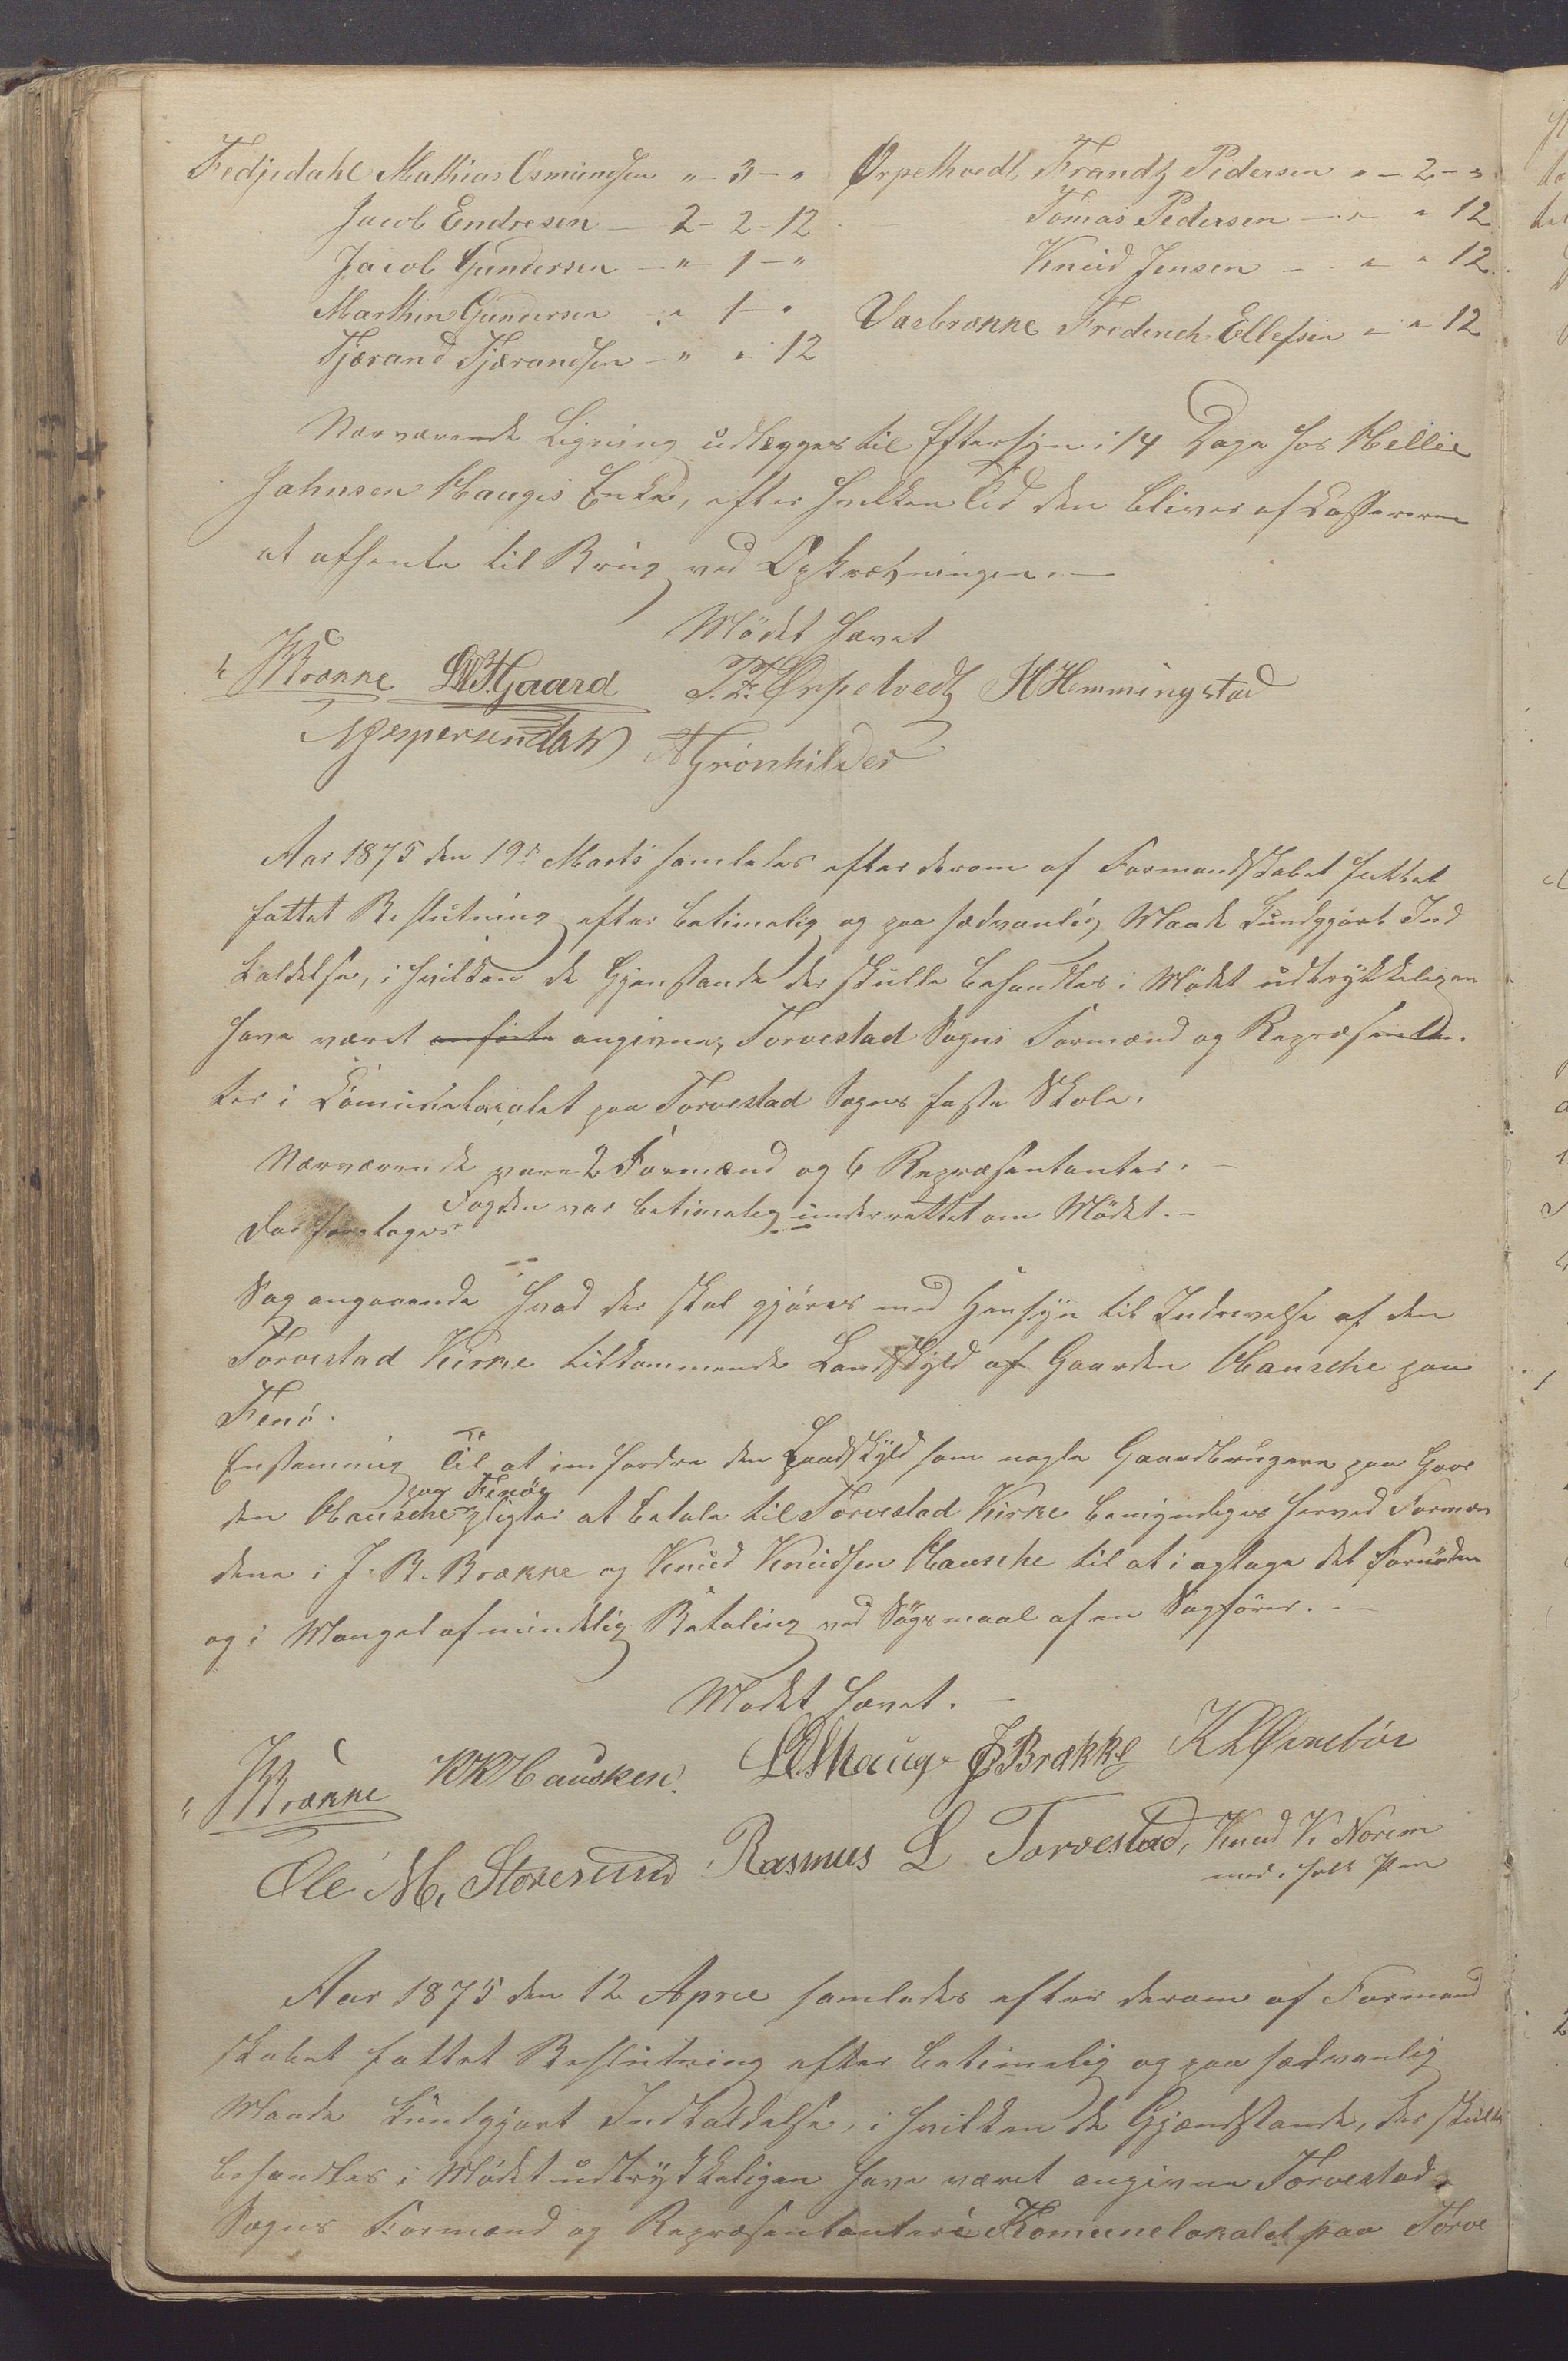 Fedjedahl Mathias Osmundsen " - 3 - "
Jacob Endresen - 2 - 2 - 12
Jacob Gundersen - " - 1 - "
Marthin Gundersen - " 1 - "
Tjærand Tjærandsen - " " 12
Ørpethvedt, Frandtz Pedersen " - 2 - "
Tomas Pedersen - " - " 12
Knud Jensen - " " 12
Vasbrække Frederich Ellefsen " - " 12
Nærværende Ligning udlægges til Eftersyn i 14 Dage hos Mellie
Johnsen Hauges Enke, efter hvilken Tid den bliver af Kassereren
at afhente til Brug ved Opkrævningen. -
Mödet hævet
JBrække LWTGaard T. F. Ørpetvedt H Hemmingstad
NJespersendah A Grönhilder
Aar 1875 den 19de Marts samledes efter derom af Formandskabet fattet
fattet Beslutning efter betimelig og paa sædvanlig Maade kundgjort Ind
kaldelse, i hvilken de Gjenstande der skulle behandles i Mödet udtrykkeligen
have været anförte angivne, Torvestad Sogns Formænd og Repræsentan
ter i Komunelocalet paa Torvestad Sogns faste Skole.
Nærværende vare 2 Formænd og 6 Repræsentanter. -
Fogden var betimelig underrettet om Mödet. -
Der foretages
Sag angaaende hvad der skal gjöres med Hensyn til Inddrivelse af den
Torvestad Kirke tilkommende Landskyld af Gaarden Hausche paa
Fenö.
Enstemmig Til at indfordre den Landskyld som nogle Gaardbrugere paa Gaar
den Hausche paa Fenöe pligter at betale til Torvestad Kirke bemyndiges herved Formæn
dene i J. B. Brække og Knud Knudsen Hausche til at iagtage det Fornödne
og i Mangel af mindelig Betaling ved Sögsmaal af en Sagförer. -
Mödet hævet. -
JBrække KKHausken. LOHauge JBrække KLØvreböe
Ole M. Storesund Rasmus L Torvestad, Knud K. Norem
med. holt Pen
Aar 1875 den 12 April samledes efter derom af Formand
skabet fattet Beslutning efter betimelig og paa sædvanlig
Maade kundgjort Indkaldelse, i hvilken de Gjændstande, der skulle
behandles i Mödet udtrykkeligen have været angivne Torvestad
Sogns Formænd og Repræsentanter i Komunelokalet paa Torve